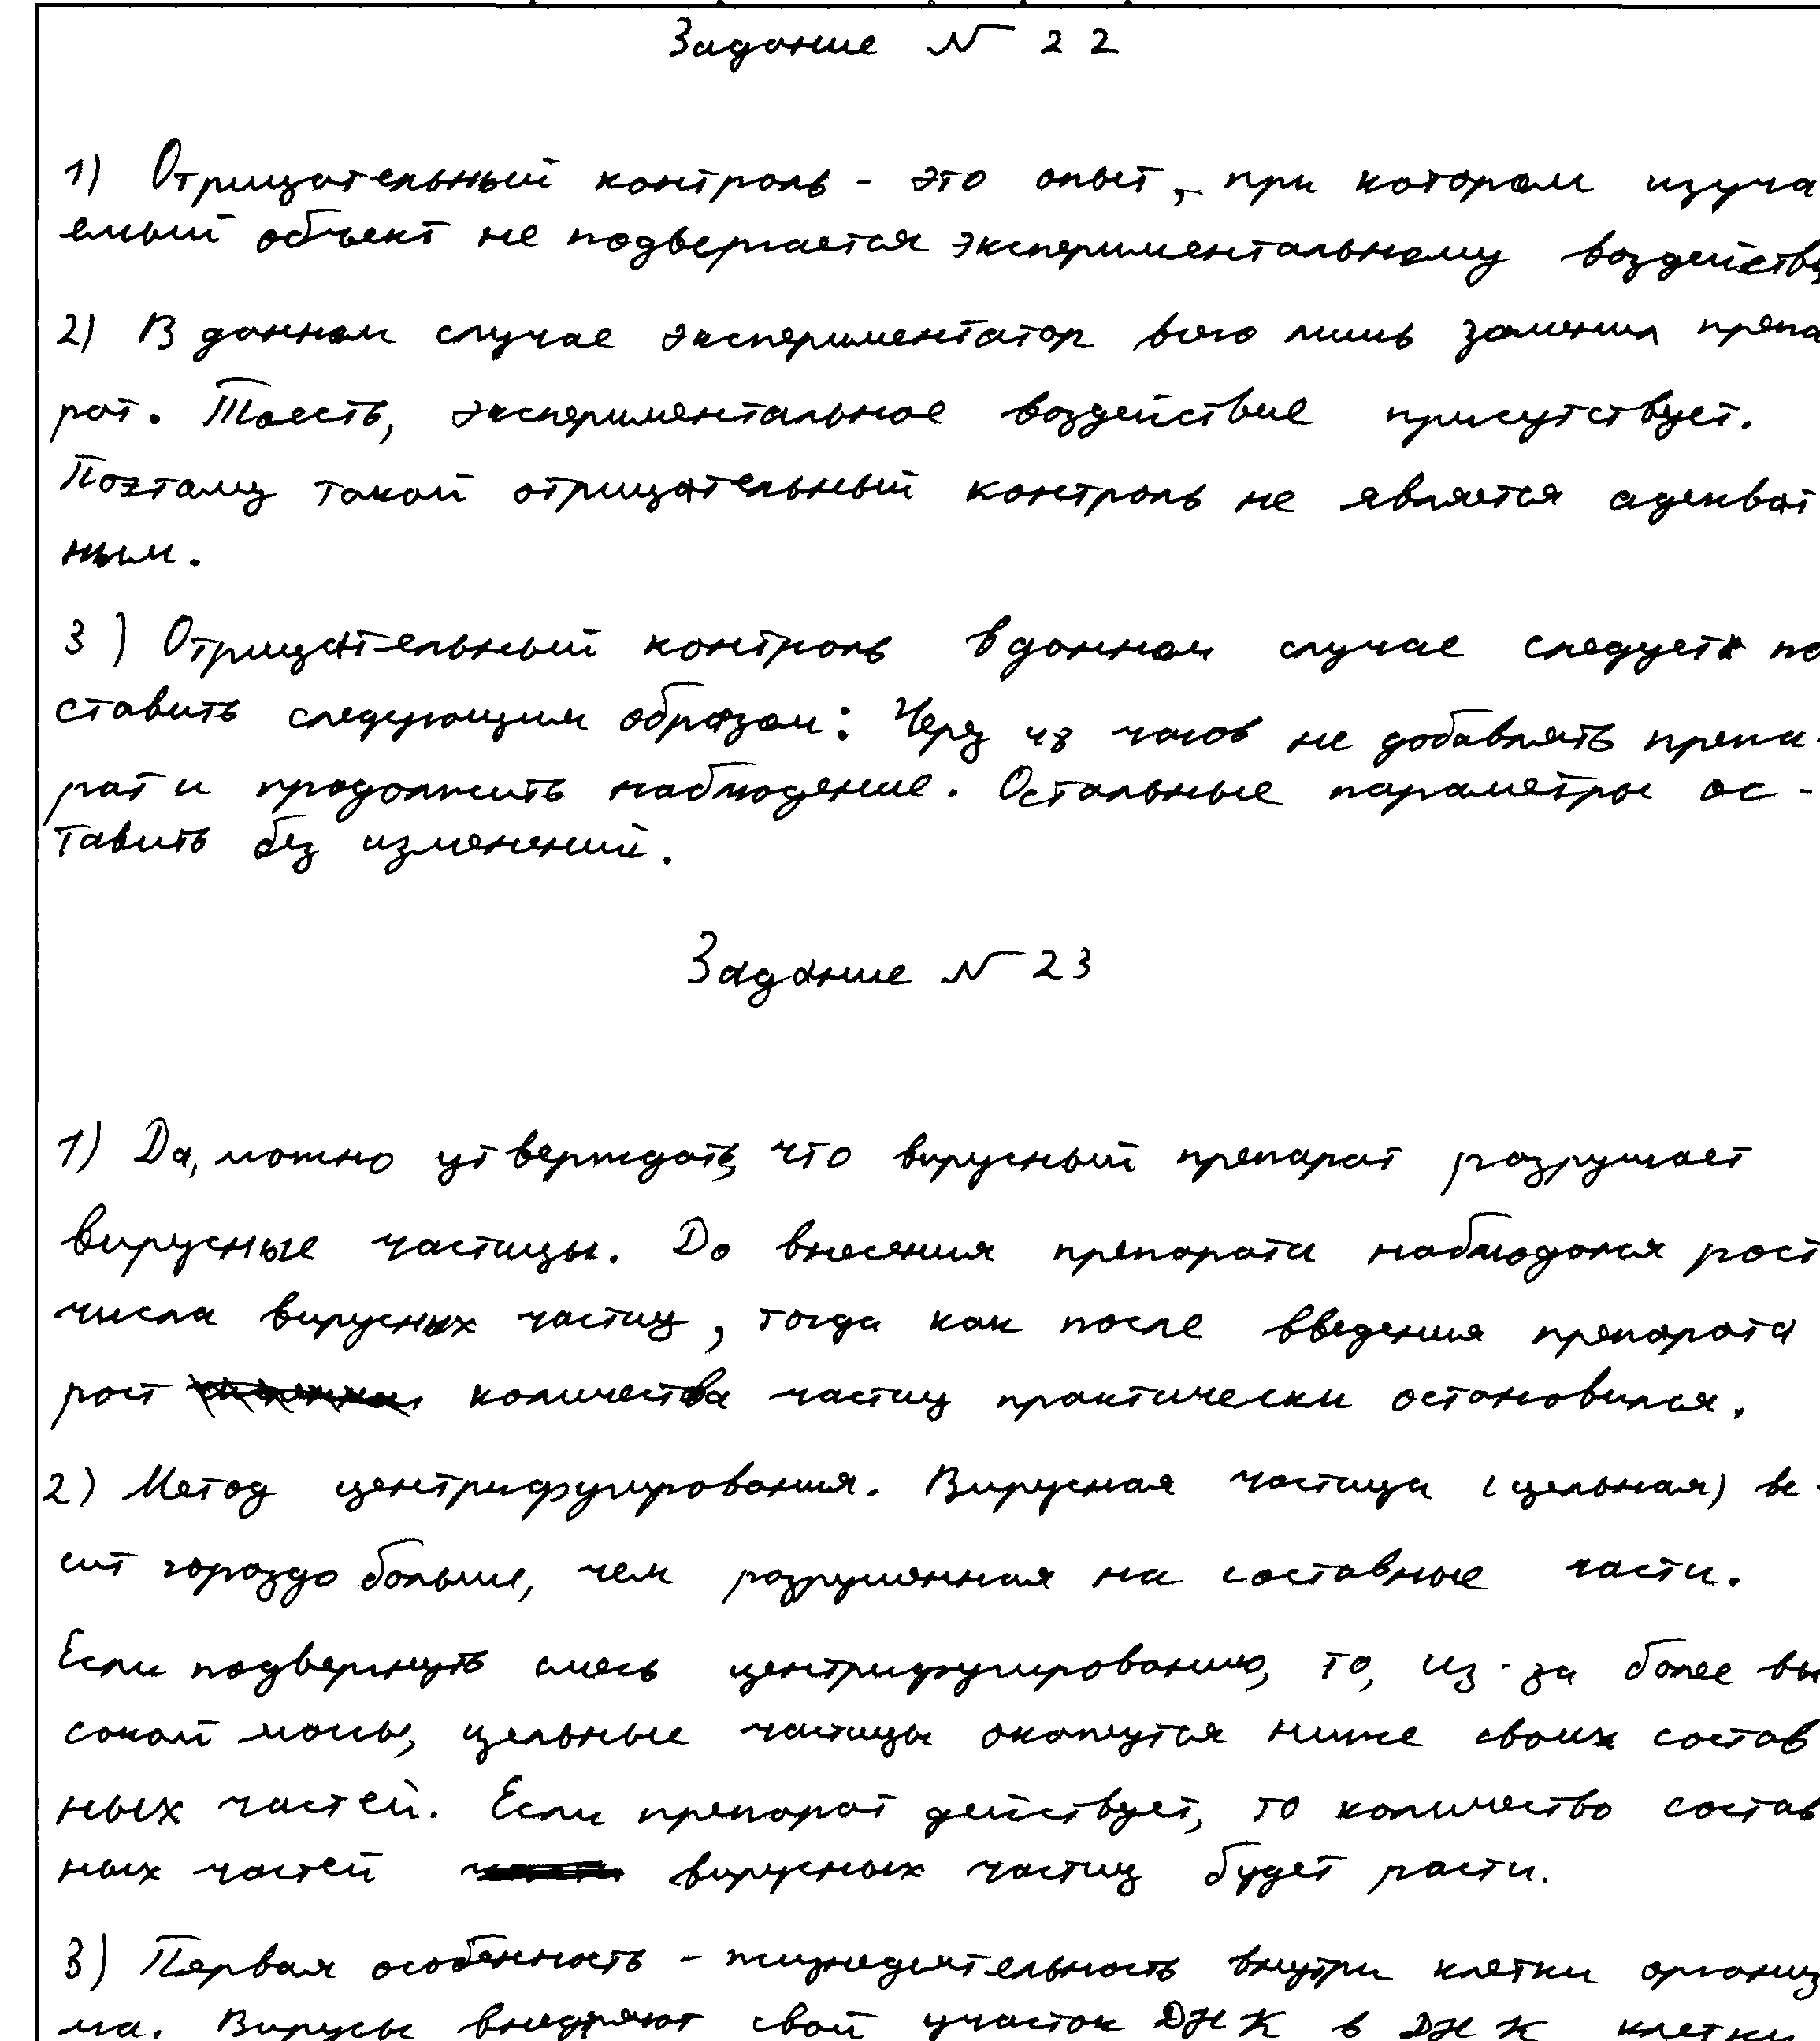 Задание N 22
1) Отрицательный контроль - это опыт, при котором изуча
емый объект не подвергается экспериментальному воздейств
2) В данном случае экспериментатор всего лишь заменил препа
рат. Тоесть, экспериментальное воздействие присутствует.
Поэтому такой отрицательный контроль не является адекват
ным.
3) Отрицательный контроль в данном случае следует по
ставить следующим образом: Через 48 часов не добавлять препа-
рат и продолжить наблюдение. Остальные параметры ос-
тавить без изменений.
Задание N 23
1) Да, можно утверждать, что вирусный препарат разрушает
вирусные частицы. До внесения препарата наблюдался рост
числа вирусных частиц, тогда как после введения препарата
рост количества частиц практически остановился.
2) Метод центрифугирования. Вирусная частица (цельная) ве-
сит гораздо больше, чем разрушенная на составные части.
Если подвергнуть смесь центрифугированию, то, из-за более вы
сокой массы, цельные частицы окажутся ниже своих состав
ных частей. Если препарат действует, то количество состав
ных частей вирусных частиц будет расти.
3) Первая особенность - жизнедеятельность внутри клетки организ
ма. Вирусы внедряют свой участок ДНК в ДНК клетки